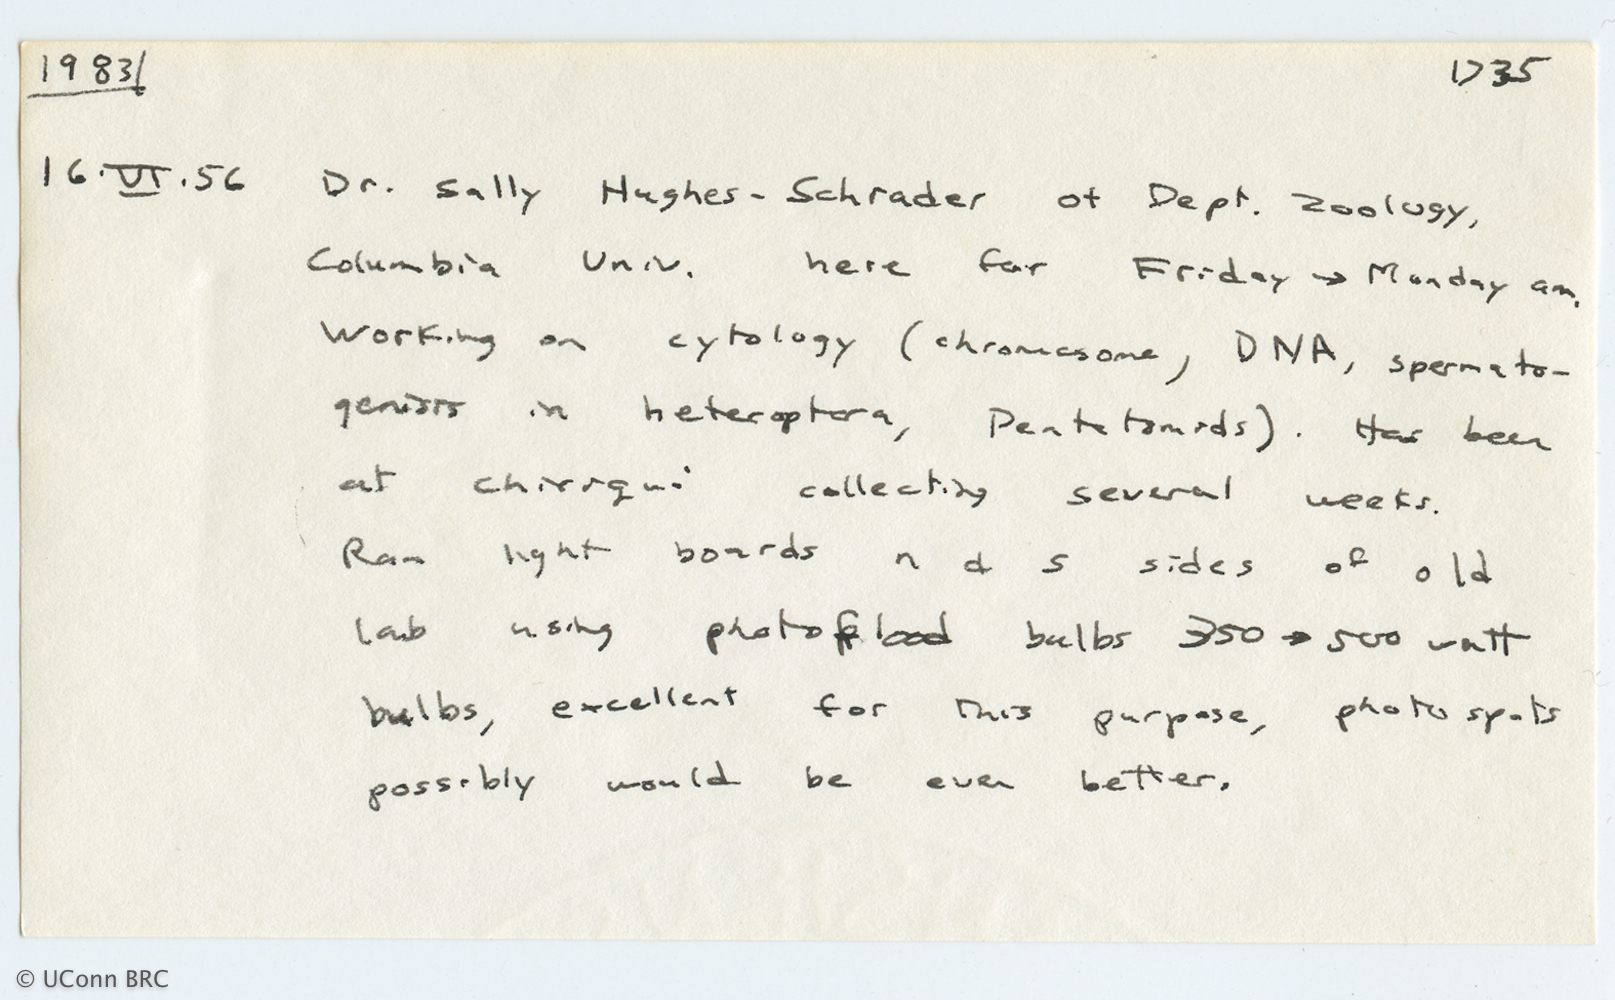 1983 D35
16.VI.56 Dr. Sally Hughes-Schrader of Dept. Zoology,
Columbia Univ. here for Friday → Monday am.
Working on cytology (chromosome, DNA, spermato-
genisis in heteroptera, Pentatomids). Has been
at chirriqui collecting several weeks.
Ran light boards n & s sides of old
lab using photoflood bulbs 350 → 500 watt
bulbs, excellent for this purpose, photo spots
possibly would be even better.
© UConn BRC